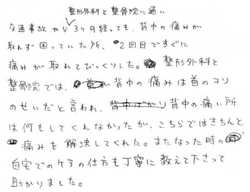 整形外科と整骨院に通い
交通事故から3ヶ月経っても、背中の痛みが
取れず困っていた所、2回目ですぐに
痛みが取れてびっくりした。整形外科と
整骨院では、背中の痛みは首のコリ
のせいだと言われ、背中の痛い所
は何もしてくれなかったが、こちらではきちんと
痛みを解決してくれた。またなった時の
自宅でのケアの仕方も丁寧に教えて下さって
助かりました。